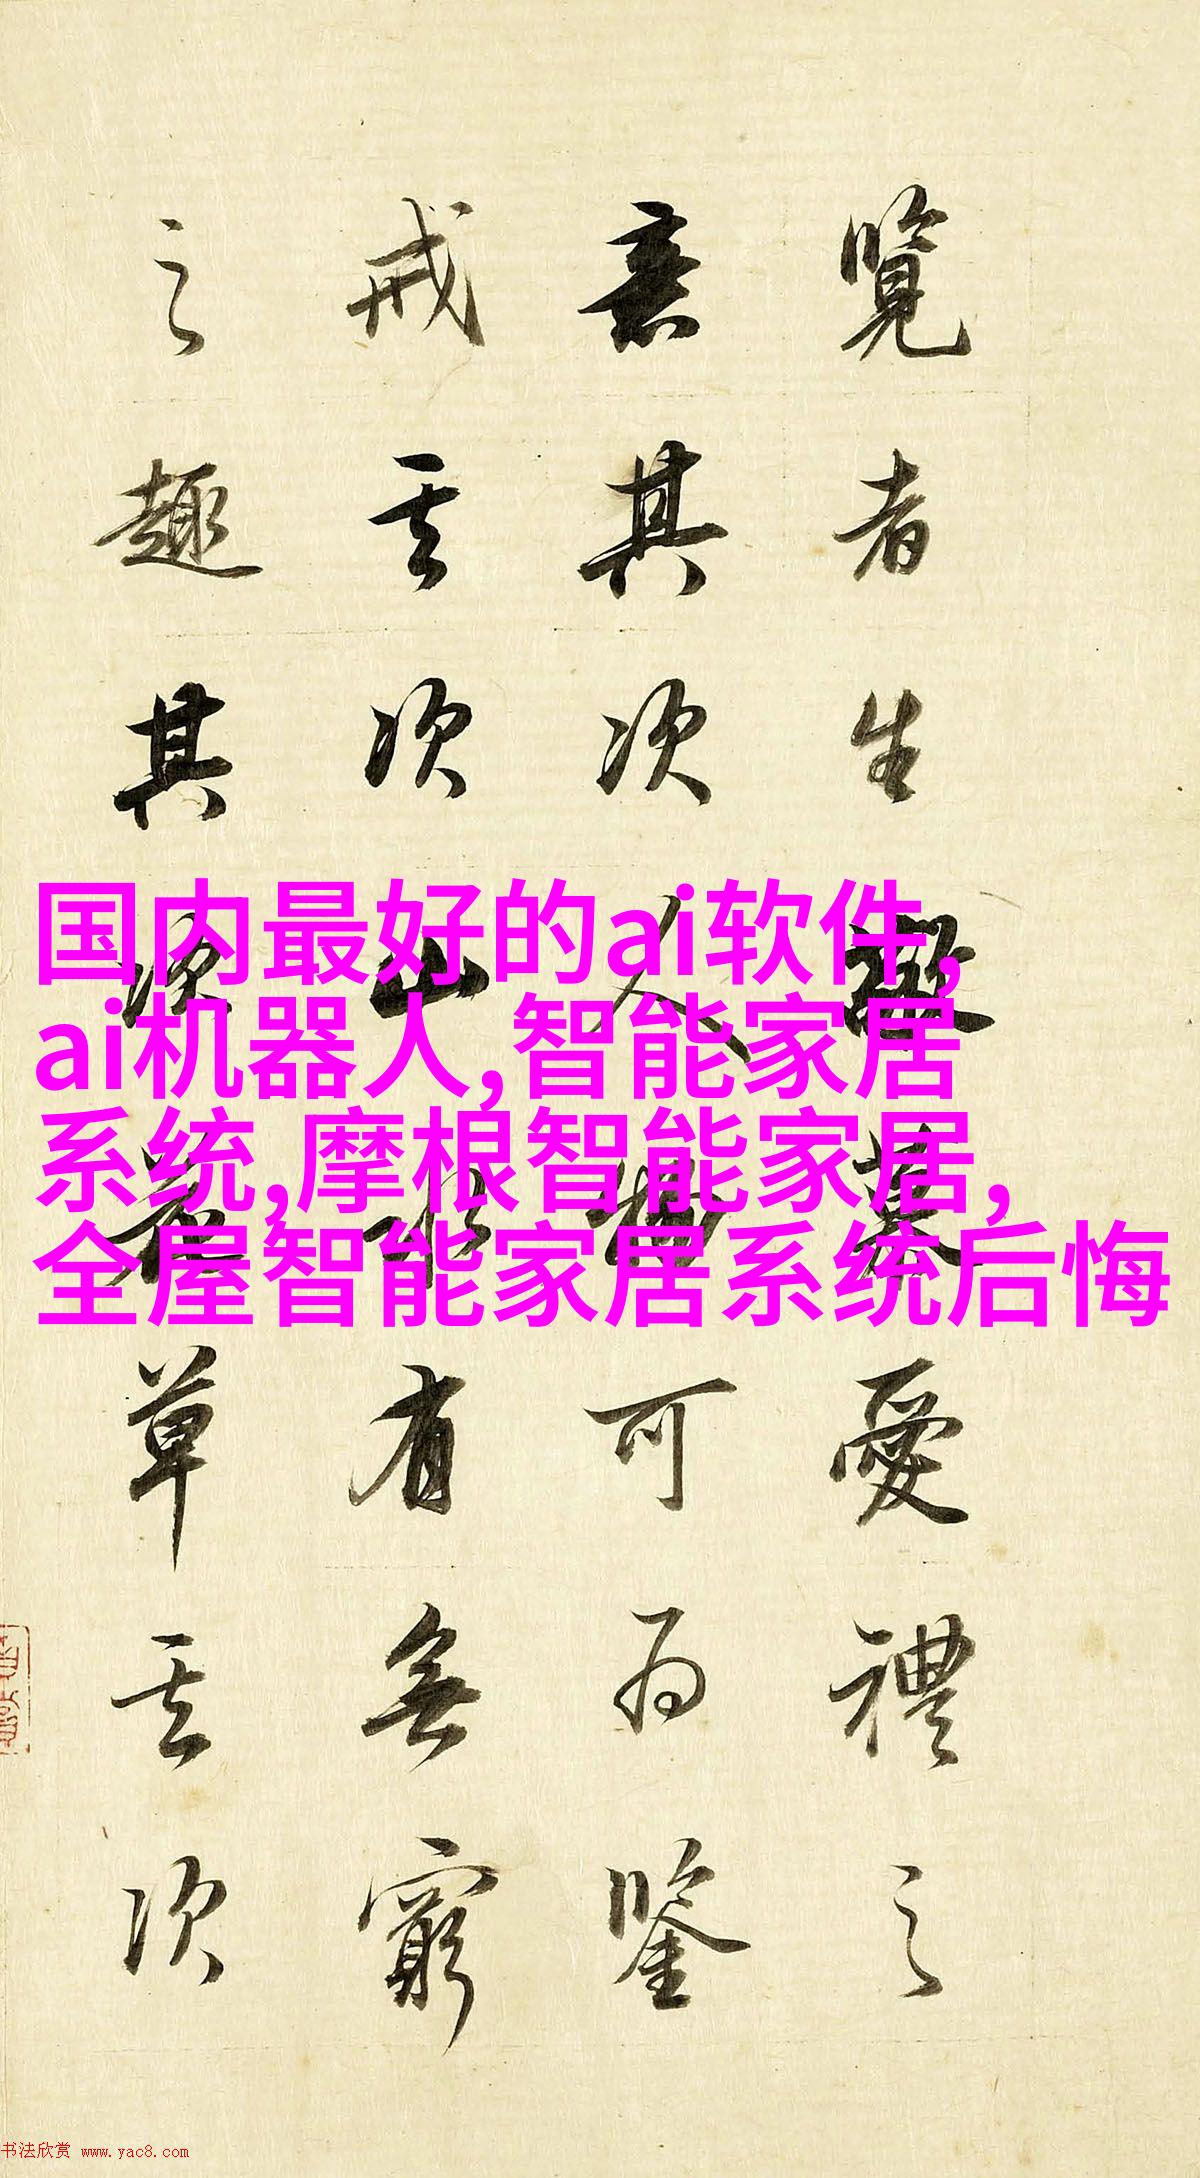 覽者生敬慕愛禮之
意其次人物可為鑒
戒其次山水有無窮
之趣其次花草其次
国内最好的ai软件,
ai机器人,智能家居
系统,摩根智能家居,
全屋智能家居系统后悔
书法欣赏 www.yac8.com